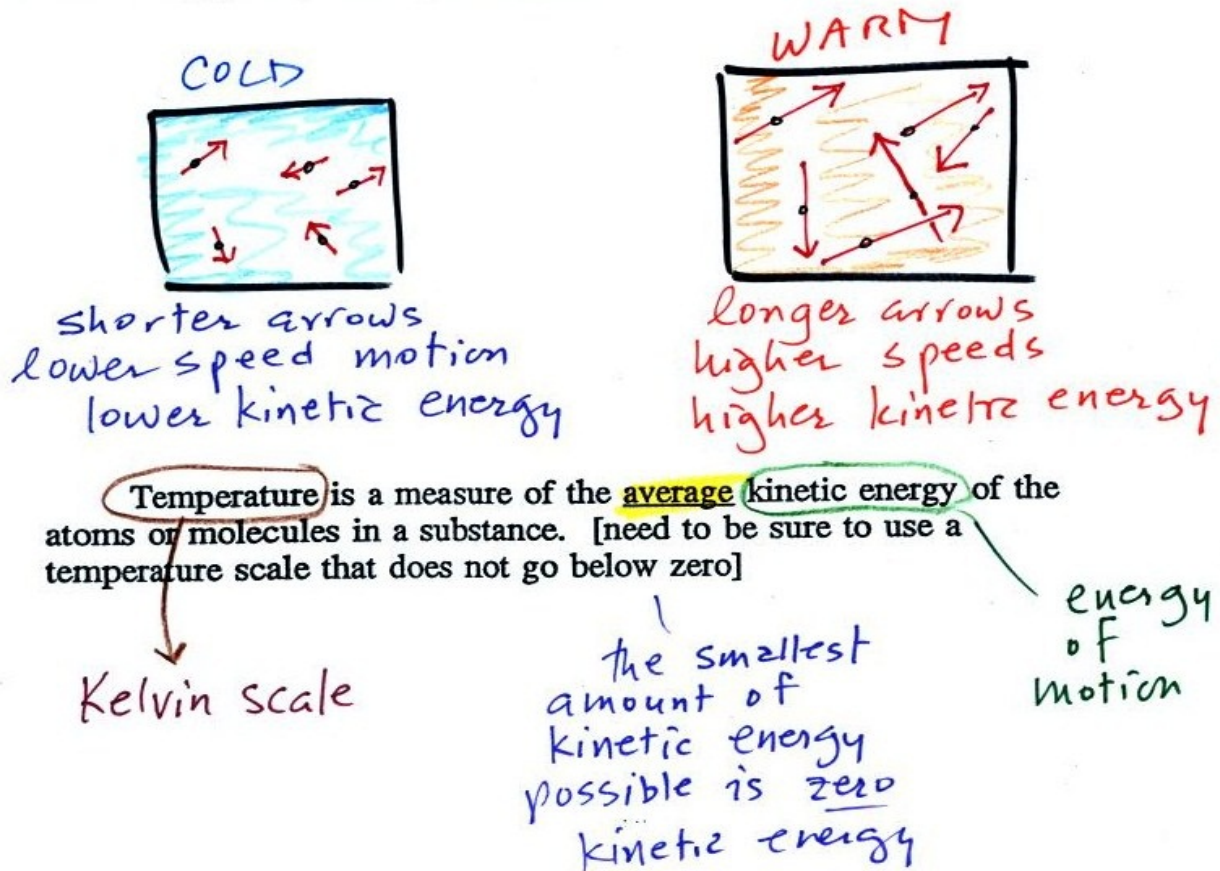 COLD
WARM
shorter arrows
lower speed motion
lower kinetic energy
longer arrows
higher speeds
higher kinetic energy
Temperature is a measure of the average kinetic energy of the
atoms or molecules in a substance. [need to be sure to use a
temperature scale that does not go below zero]
Kelvin scale
the smallest
amount of
kinetic energy
possible is zero
kinetic energy
energy
of
motion